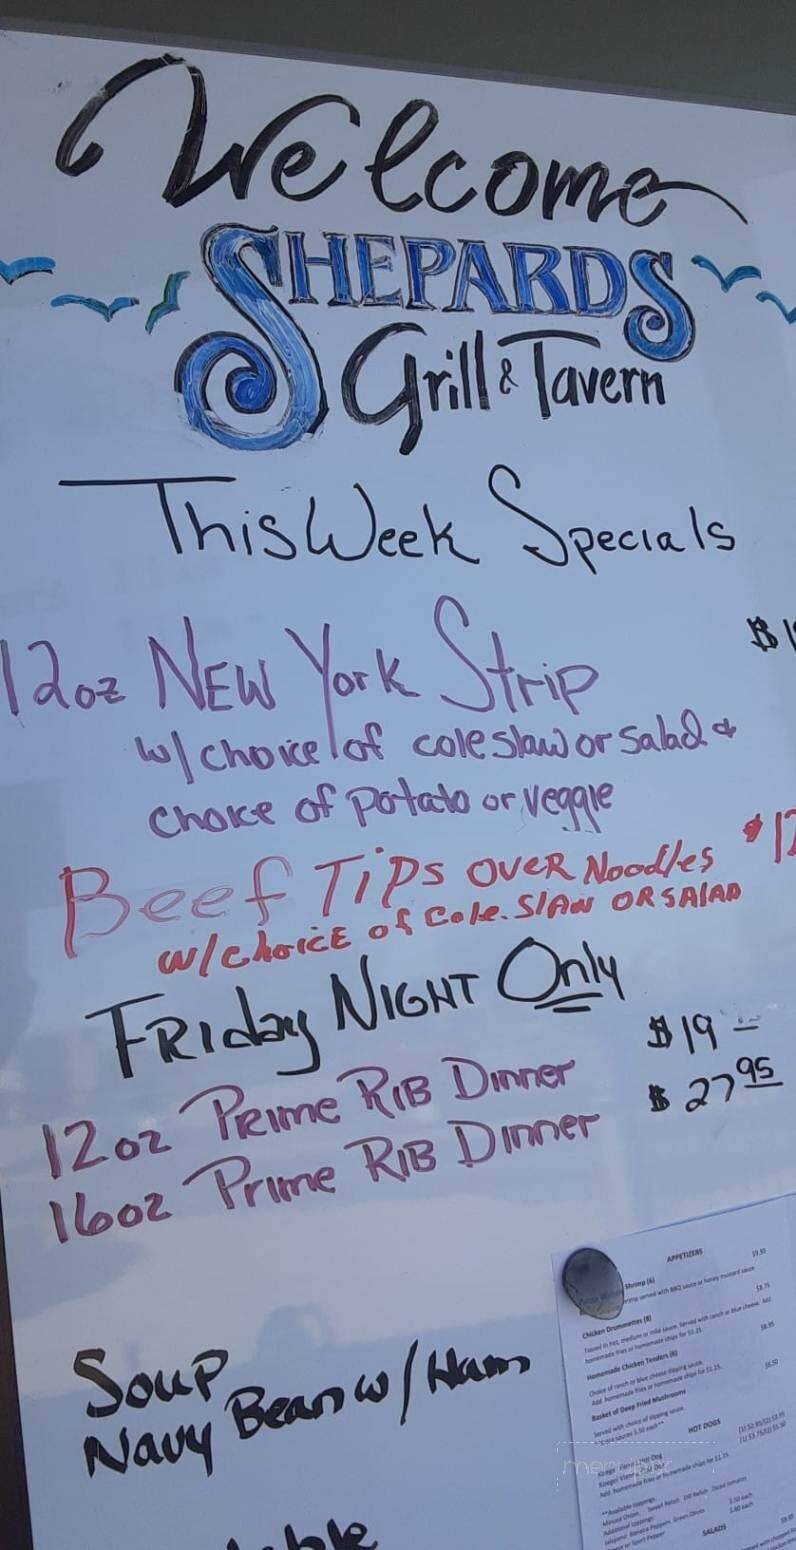 Welcome
SHEPARDS
Grill & Tavern
This Week Specials
12oz NEW York Strip
w/choice of coleslaw or salad &
choice of potato or veggie
Beef TIPS OVER Noodles
w/CHOICE of Cole. SlAW OR SALAD
FRIday NIGHT Only
12oz PRIme RIB Dinner $19
16oz Prime RIB Dinner $27 95
Soup
Navy Bean w/Ham
APPETIZERS
Shrimp (6) $9.95
served with BBQ sauce or honey mustard sauce
Chicken Drummettes (8) $8.75
Tossed in hot, medium or mild sauce. Served with ranch or blue cheese. Add
homemade fries or homemade chips for $1.25.
Homemade Chicken Tenders (6) $8.95
Choice of ranch or blue cheese dipping sauce.
Add homemade fries or homemade chips for $1.25.
Basket of Deep Fried Mushrooms $6.50
Served with choice of dipping sauce.
HOT DOGS
Add homemade fries or homemade chips for $1.25.
SALADS